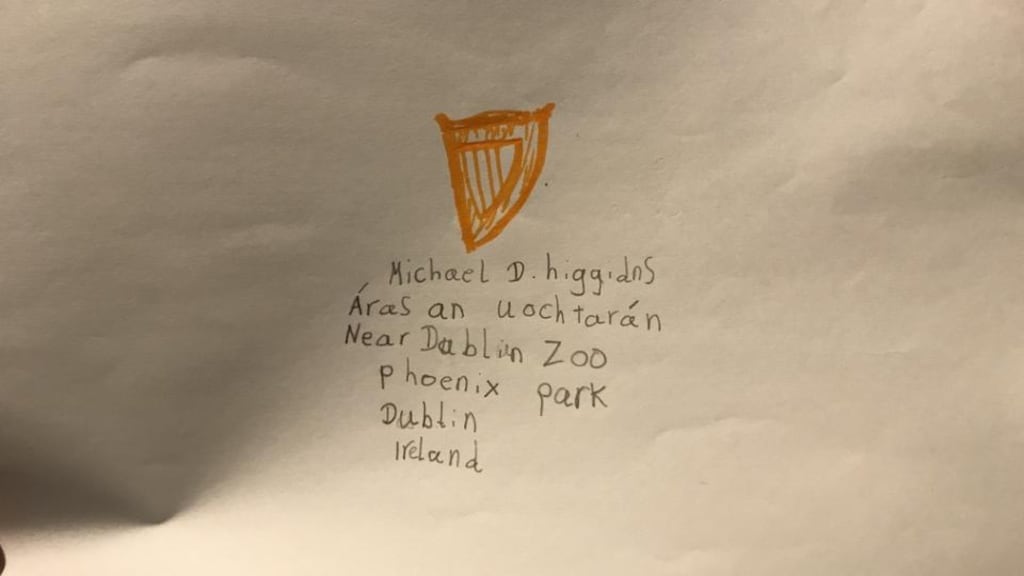 Michael D. higgidns
Áras an uochtarán
Near Dablin Zoo
phoenix park
Dublin
Ireland